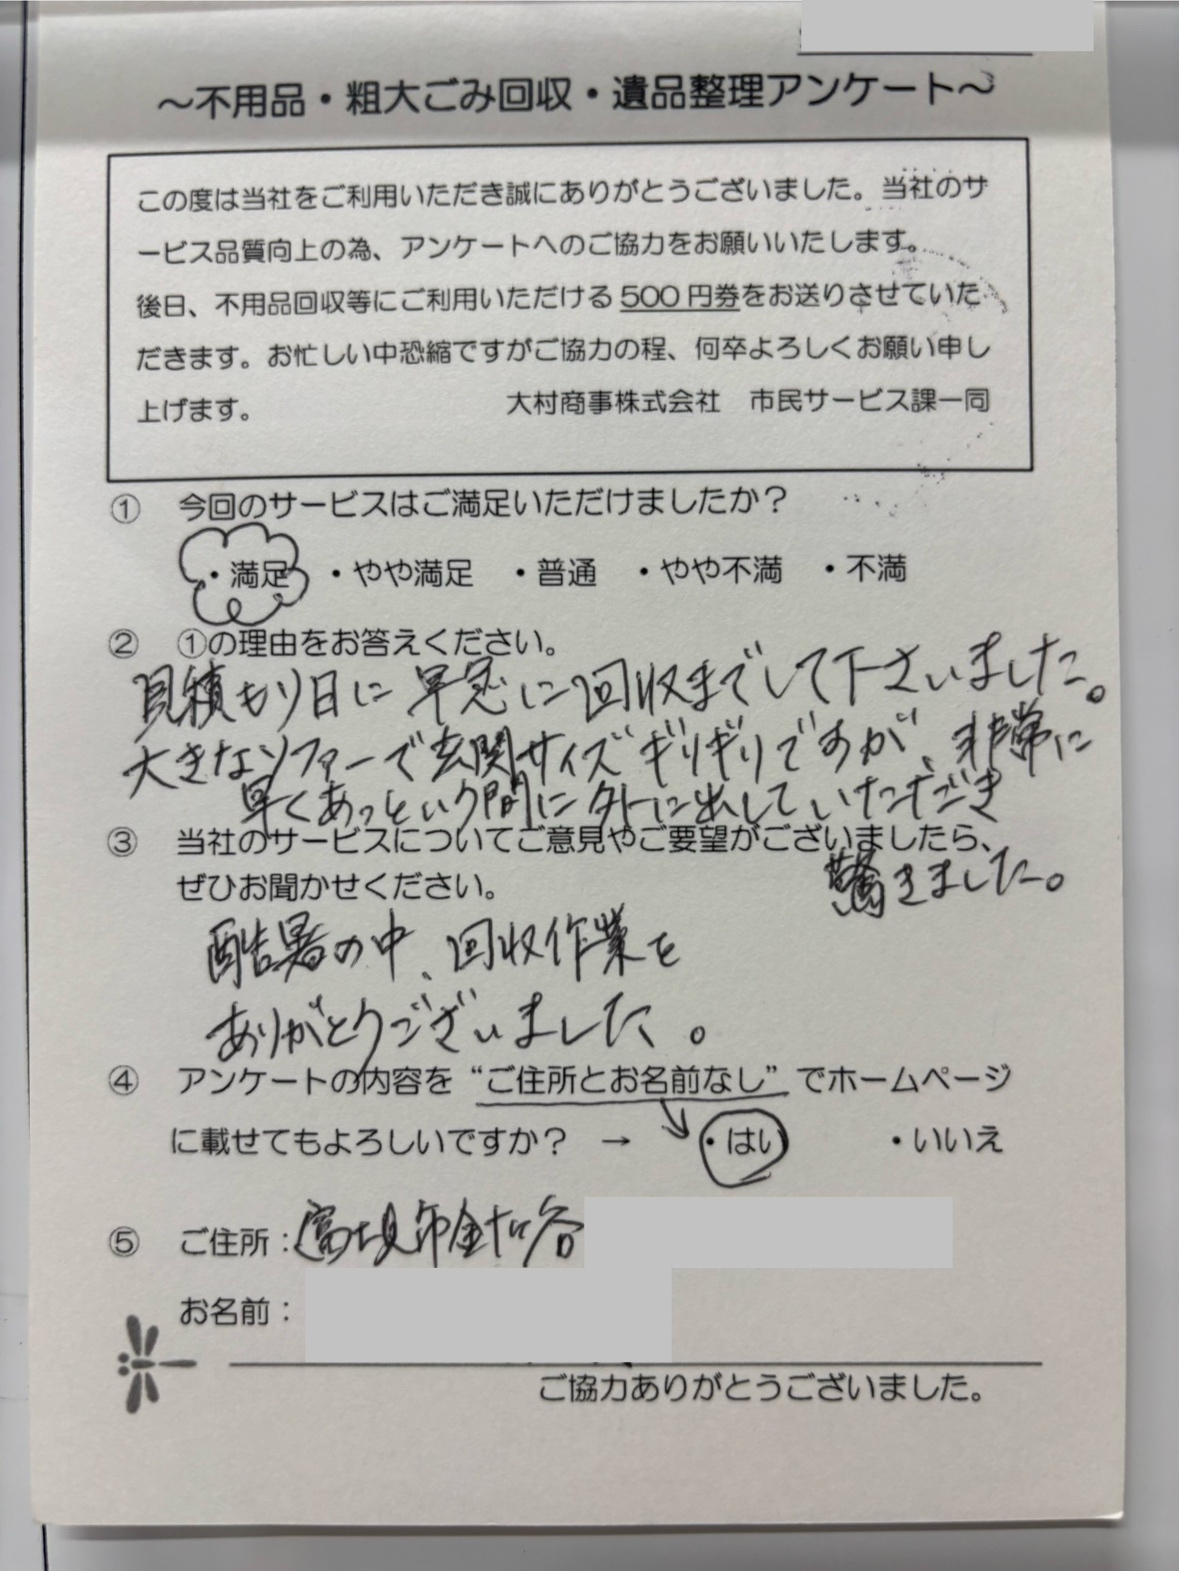 ～不用品・粗大ごみ回収・遺品整理アンケート～
この度は当社をご利用いただき誠にありがとうございました。当社のサ
ービス品質向上の為、アンケートへのご協力をお願いいたします。
後日、不用品回収等にご利用いただける500円券をお送りさせていた
だきます。お忙しい中恐縮ですがご協力の程、何卒よろしくお願い申し
上げます。　大村商事株式会社　市民サービス課一同
①　今回のサービスはご満足いただけましたか？
・満足　・やや満足　・普通　・やや不満　・不満
②　①の理由をお答えください。
見積もり日に早急に回収までして下さいました。
大きなソファーで玄関サイズギリギリですが、非常に
早くあっという間に外に出していただき
驚きました。
③　当社のサービスについてご意見やご要望がございましたら、
ぜひお聞かせください。
酷暑の中、回収作業を
ありがとうございました。
④　アンケートの内容を“ご住所とお名前なし”でホームページ
に載せてもよろしいですか？　→　・はい　・いいえ
⑤　ご住所：富士見市金谷
お名前：
ご協力ありがとうございました。